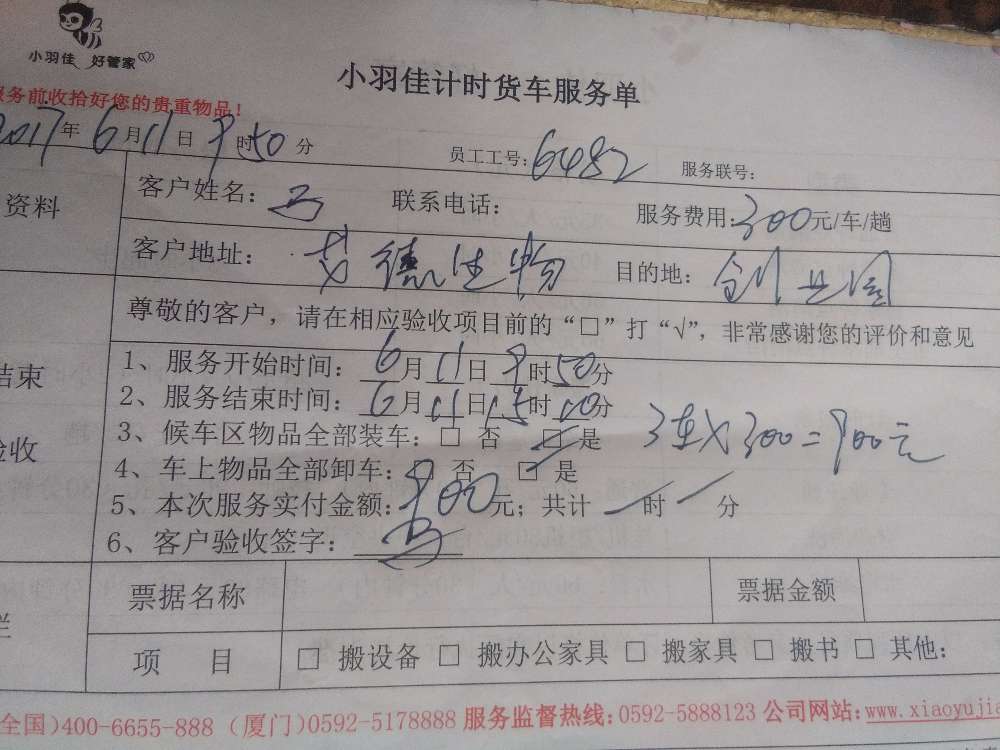 小羽佳 好管家
小羽佳计时货车服务单
服务前收拾好您的贵重物品！
2017年6月11日9时50分 员工工号：6482 服务联号：
资料
客户姓名：马 联系电话： 服务费用：300元/车/趟
客户地址：艾德生物 目的地：创业园
尊敬的客户，请在相应验收项目前的“□”打“√”，非常感谢您的评价和意见
结束
验收
1、服务开始时间：6月11日9时50分
2、服务结束时间：6月11日15时10分
3、候车区物品全部装车：□ 否 ☑ 是 3车×300=900元
4、车上物品全部卸车：□ 否 ☑ 是
5、本次服务实付金额：900元；共计 — 时 — 分
6、客户验收签字：马
票据名称 票据金额
栏
项 目 □ 搬设备 □ 搬办公家具 □ 搬家具 □ 搬书 □ 其他：
全国)400-6655-888 (厦门)0592-5178888 服务监督热线：0592-5888123 公司网站：www.xiaoyujia